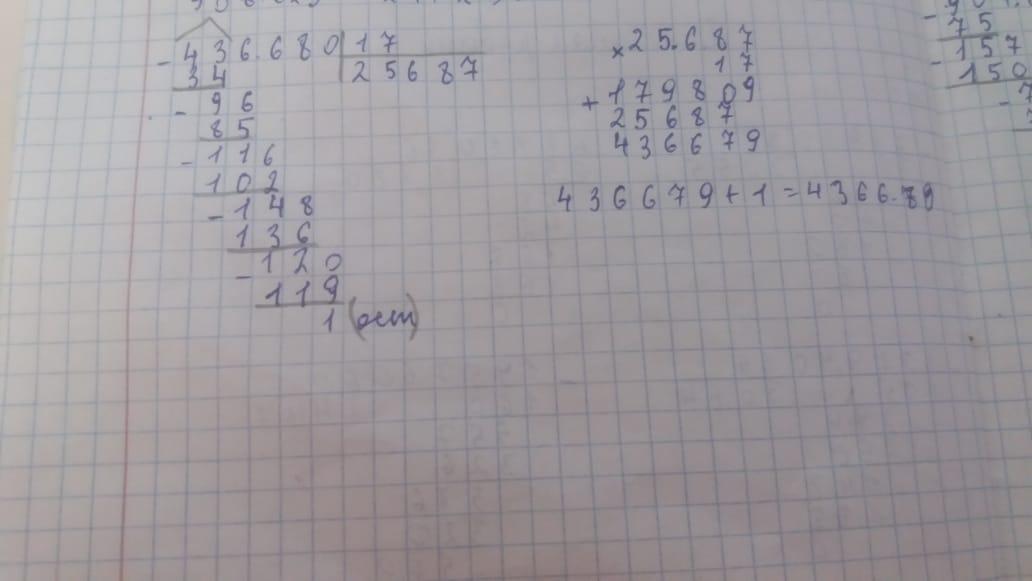 - 436.680 | 17
34 | 25687
- 96
85
- 116
102
- 148
136
- 120
119
1 (ост)
× 25.687
17
+ 179809
25687
436679
436679 + 1 = 4366.80
- 75
- 157
150